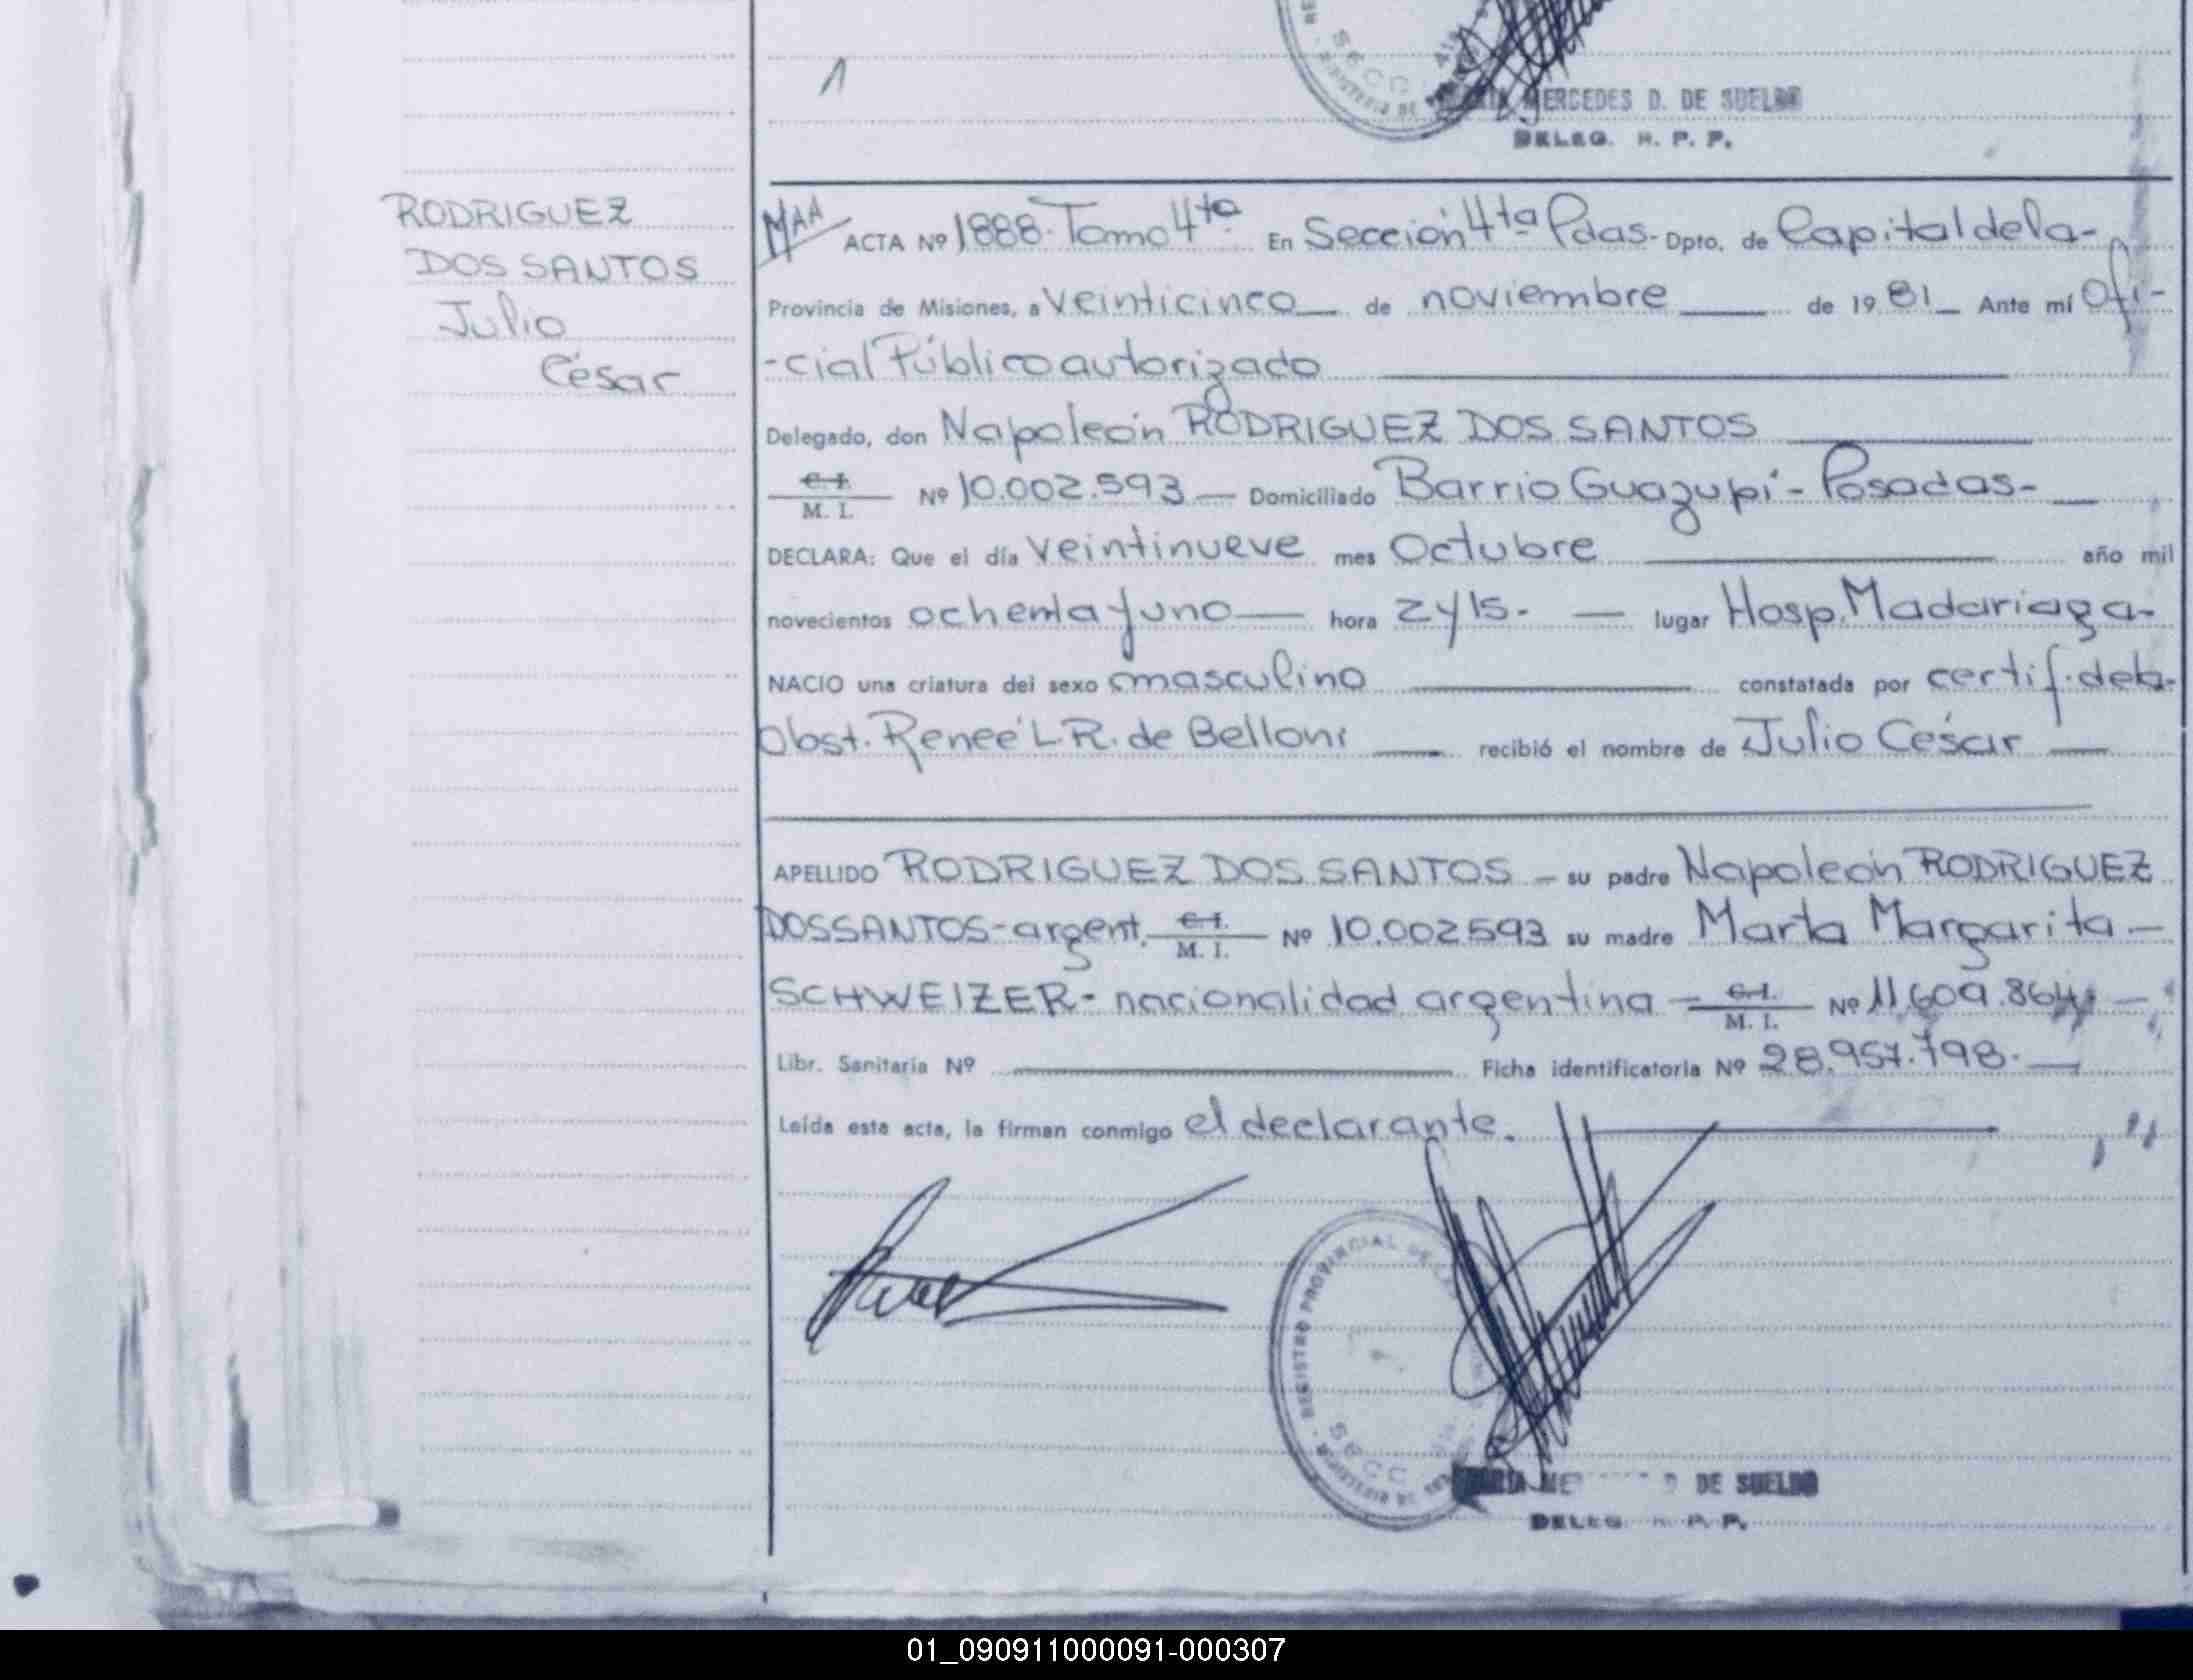 MERCEDES D. DE SUELDO
DELEG. R. P. P.
RODRIGUEZ
DOS SANTOS
Julio
César
MAA ACTA Nº 1888. Tomo 4ta En Sección 4ta Pdas. Dpto. de Capital de la-
Provincia de Misiones, a veinticinco de noviembre de 1981 Ante mí Ofi-
-cial Público autorizado
Delegado, don Napoleón RODRIGUEZ DOS SANTOS
C. I. / M. I. Nº 10.002.593 Domiciliado Barrio Guazupi - Posadas-
DECLARA: Que el día veintinueve mes Octubre año mil
novecientos ochenta y uno hora 2 y 15. lugar Hosp. Madariaga-
NACIO una criatura del sexo masculino constatada por certif. de la-
Obst. Reneé L.R. de Belloni recibió el nombre de Julio César
APELLIDO RODRIGUEZ DOS SANTOS su padre Napoleón RODRIGUEZ
DOS SANTOS-argent. C. I. / M. I. Nº 10.002593 su madre Marta Margarita
SCHWEIZER- nacionalidad argentina C. I. / M. I. Nº 11,609.864
Libr. Sanitaria Nº Ficha identificatoria Nº 28.957.798.
Leída esta acta, la firman conmigo el declarante.
REGISTRO PROVINCIAL DE LAS
SECC
DE SUELDO
DELEG. R. P. P.
01_090911000091-000307